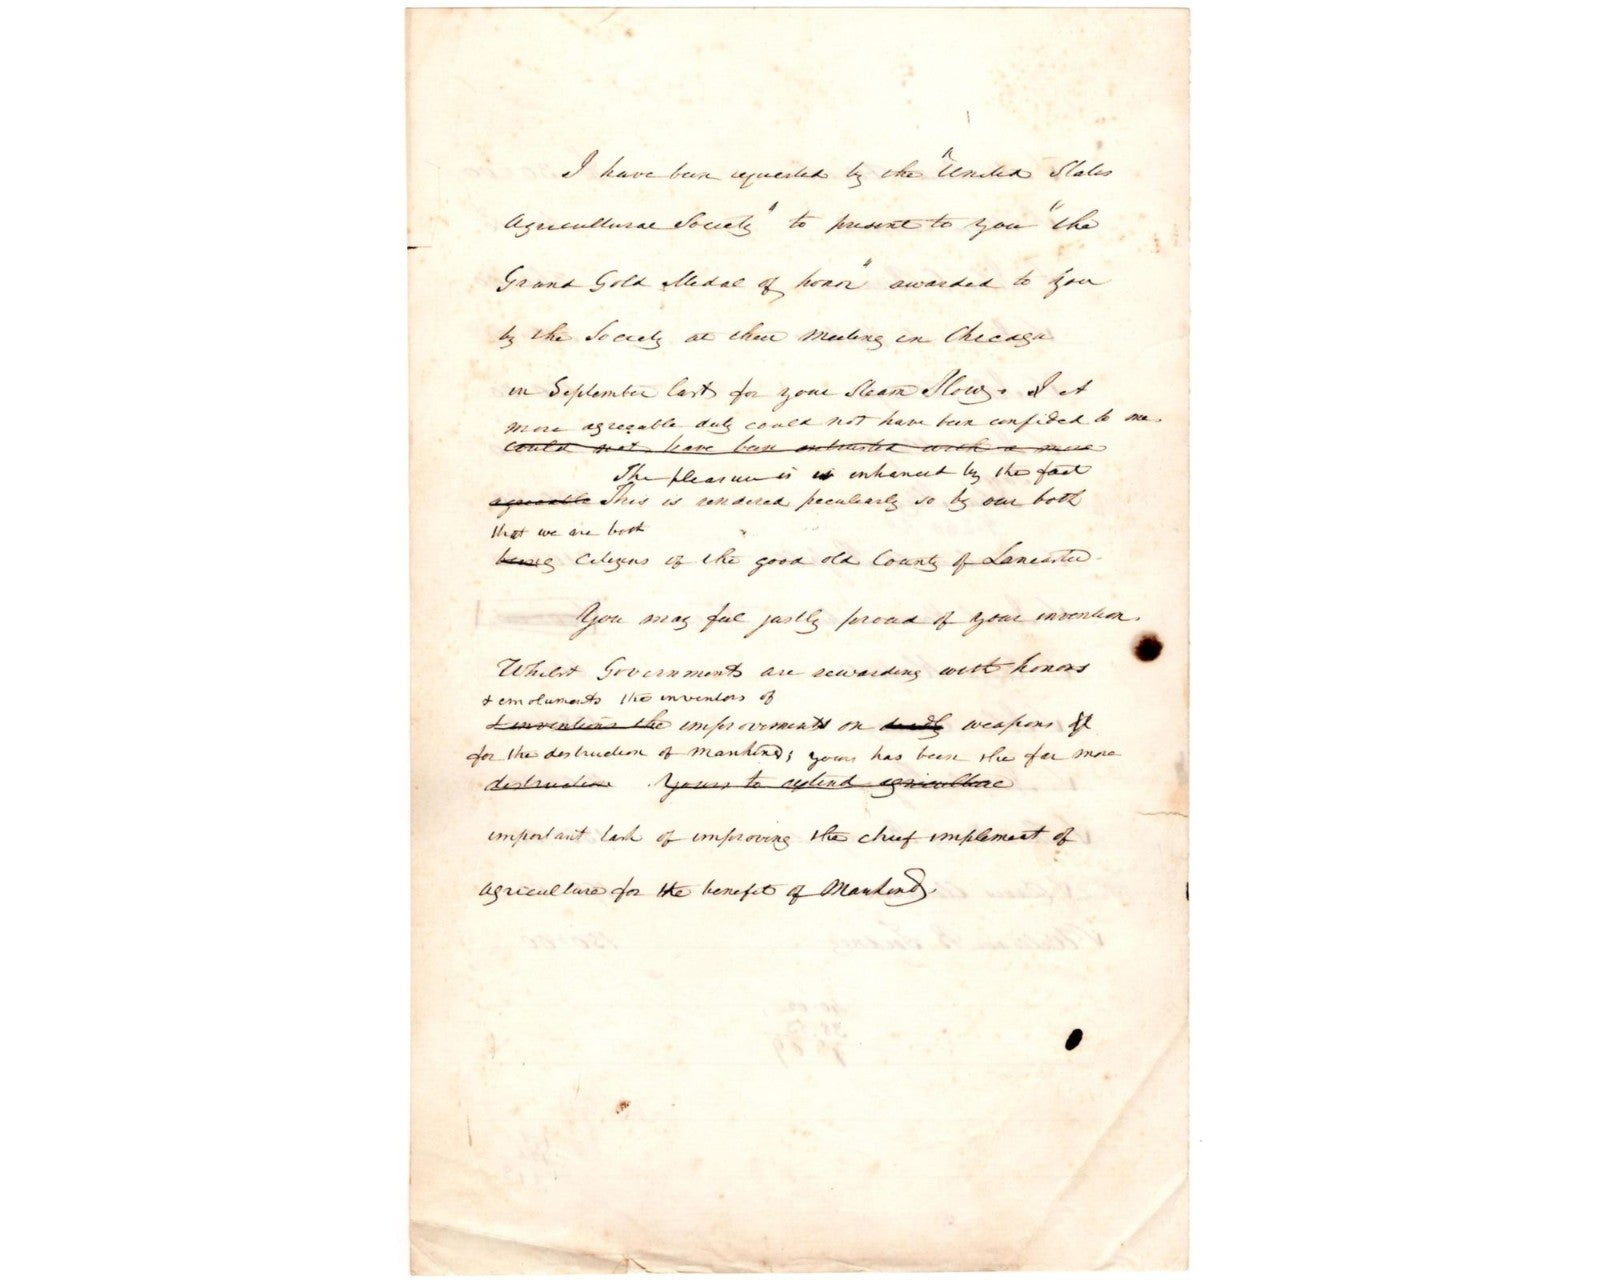 I have been requested by the "United States
Agricultural Society" to present to you "the
Grand Gold Medal of honor" awarded to you
by the Society at their Meeting in Chicago
in September last for your Steam Plow. I A
more agreeable duty could not have been confided to me.
could not have been entrusted with a more
The pleasure is is enhanced by the fact
agreeable This is rendered peculiarly so by our both
that we are both
being Citizens of the good old County of Lancaster.
You may feel justly proud of your invention.
Whilst Governments are rewarding with honors
& emoluments the inventors of
& inventions the improvements on deadly weapons of
for the destruction of Mankind; yours has been the far more
destruction. Yours to extend agriculture
important task of improving the chief implement of
agriculture for the benefit of Mankind.
150-00